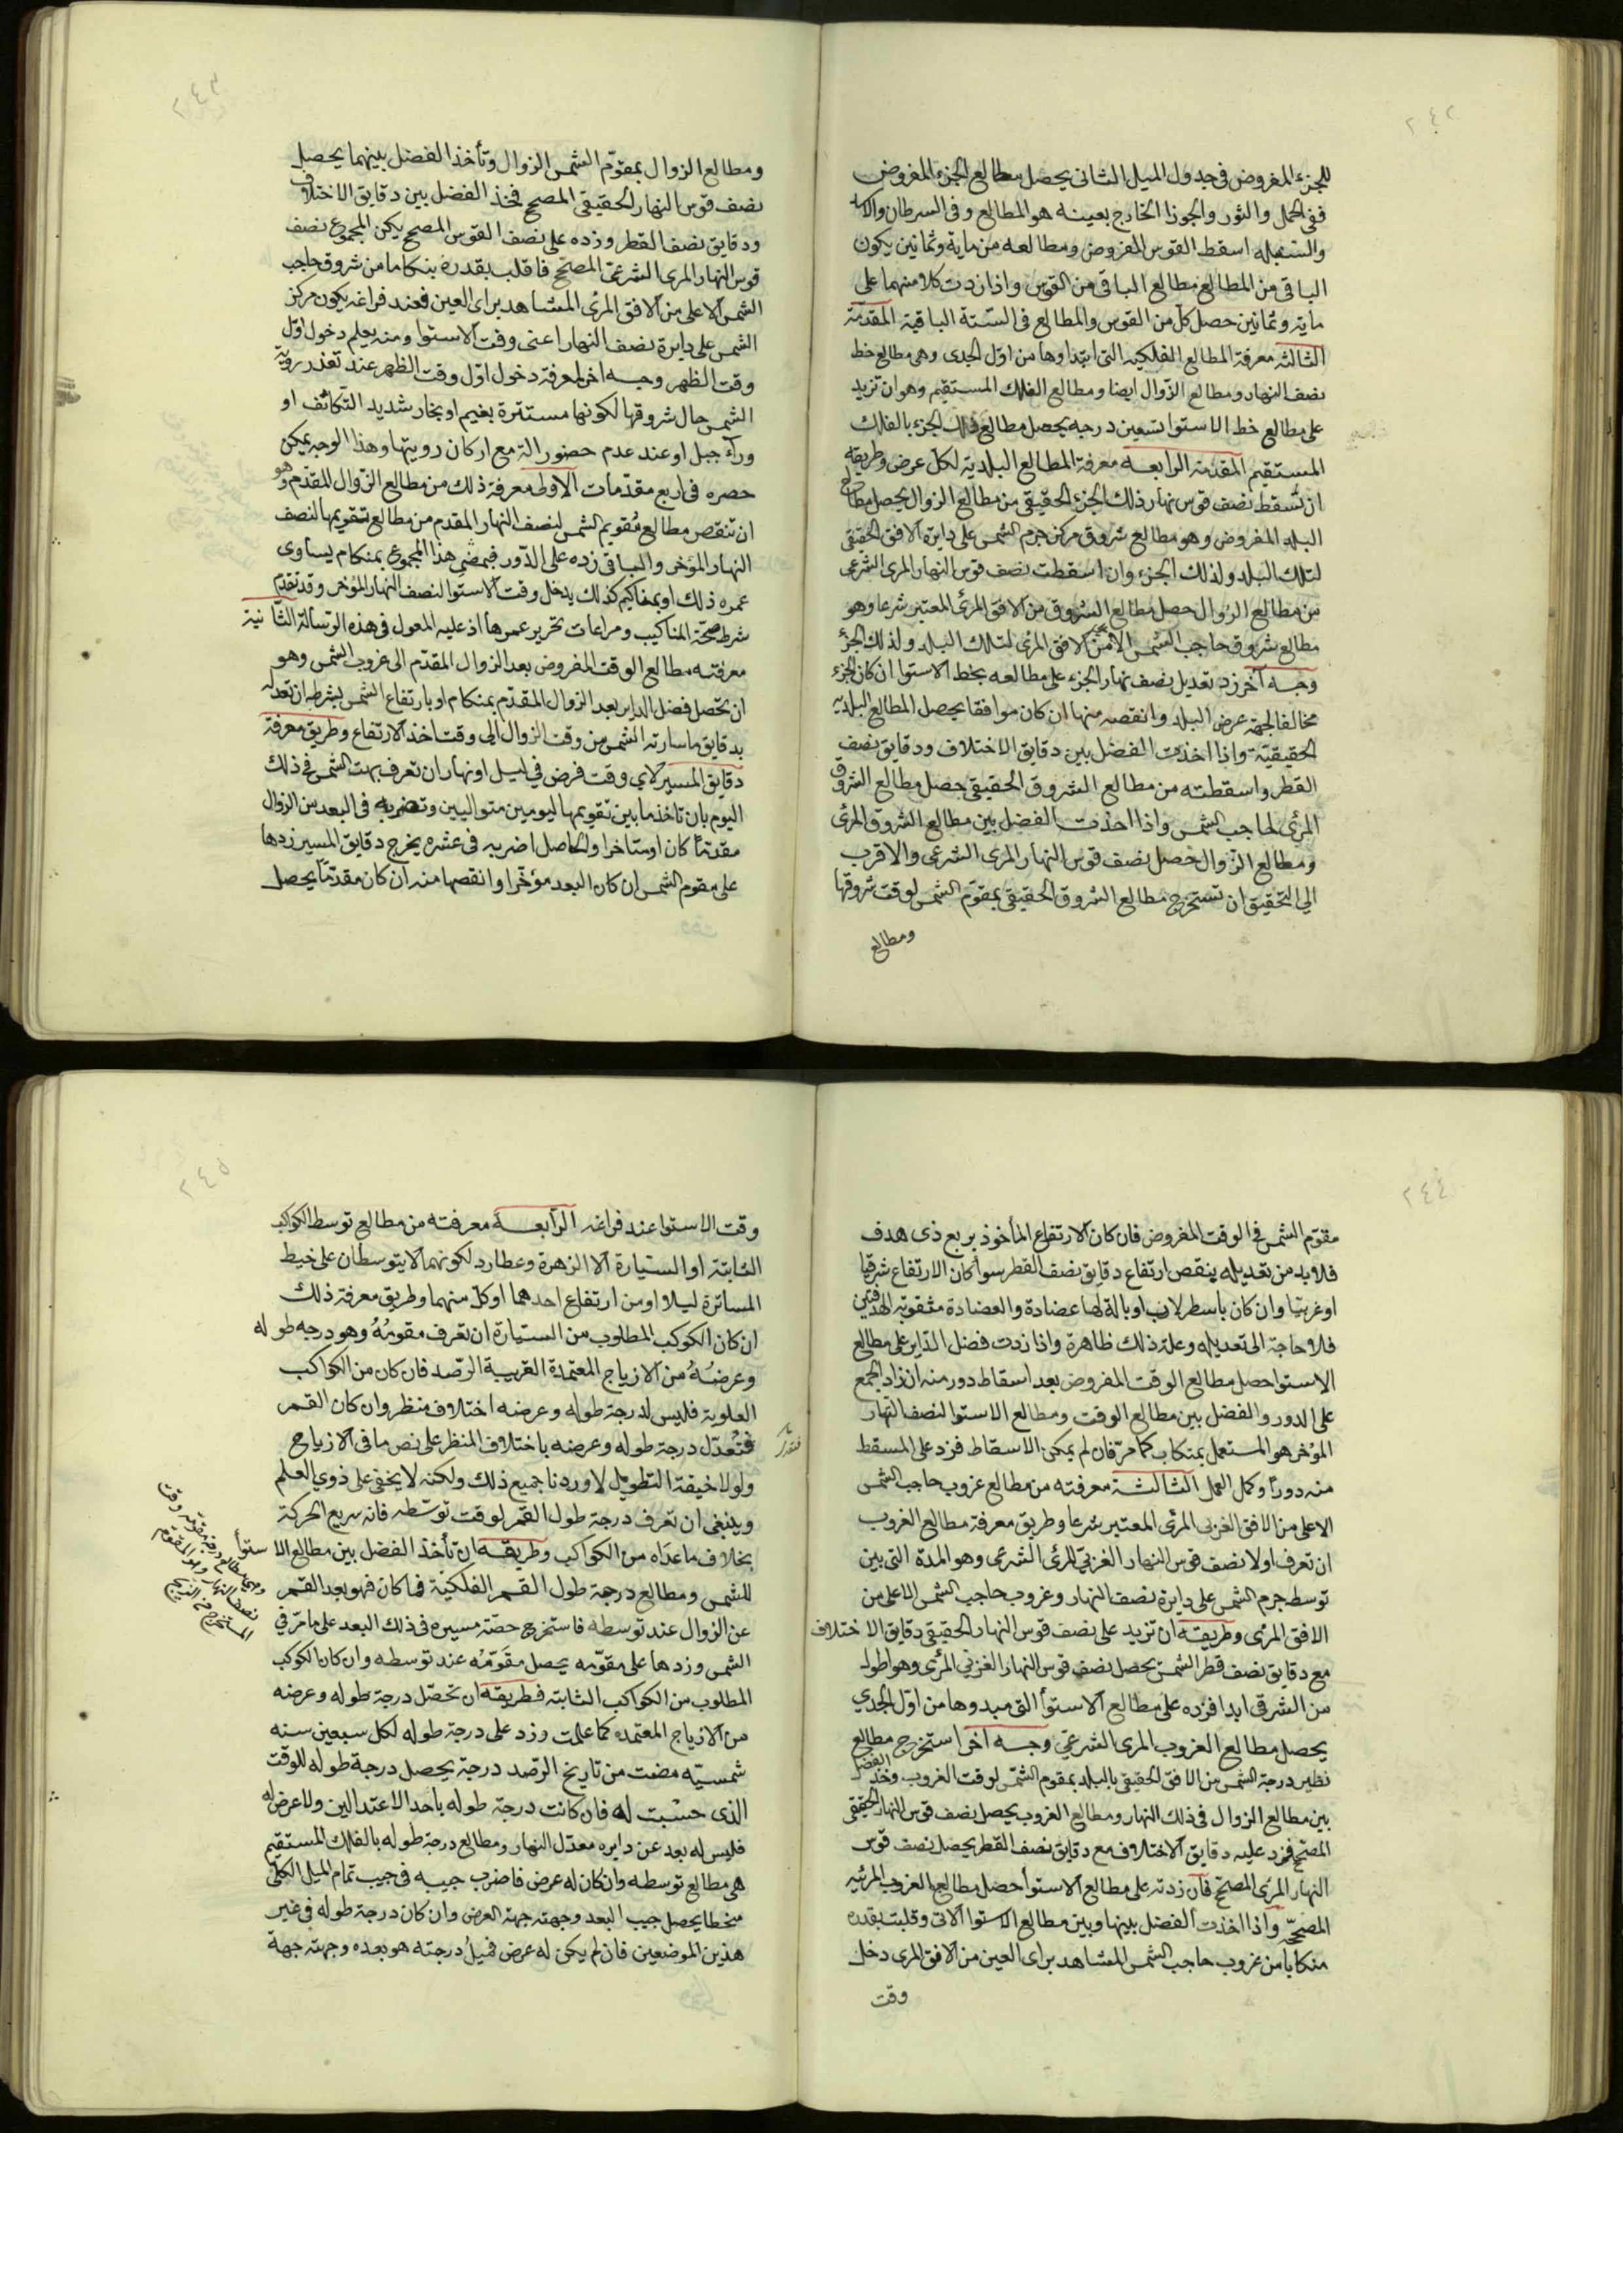 ٢٤٢
للجزء المفروض فى جدول الميل الثانى يحصل مطالع الجزء المفروض
ففى الحمل والثور والجوزا الخارج بعينه هو المطالع وفى السرطان والاسد
والسنبله اسقط القوس المفروض ومطالعه من ماية وثمانين يكون
الباقى من المطالع مطالع الباقى من القوس واذا زدت كلا منهما على
ماية وثمانين حصل كل من القوس والمطالع فى الستة الباقية المقدمة
الثالثه معرفة المطالع الفلكيه التى ابتداوها من اول الجدى وهى مطالع خط
نصف النهار ومطالع الزوال ايضا ومطالع الفلك المستقيم وهو ان تزيد
على مطالع خط الاستوا تسعين درجه يحصل مطالع ذلك الجزء بالفلك
المستقيم المقدمة الرابعه معرفة المطالع البلدية لكل عرض وطريقه
ان تسقط نصف قوس نهار ذلك الجزء الحقيقى من مطالع الزوال يحصل مطالع
البلد المفروض وهو مطالع شروق مركز جرم الشمس على دايرة الافق الحقيقى
لتلك البلد ولذلك الجزء وان اسقطت نصف قوس النهار المرى الشرعى
من مطالع الزوال حصل مطالع الشروق من الافق المرئى المعتبر شرعا وهو
مطالع شروق حاجب الشمس الا من الافق المرئى لتلك البلد ولذلك الجزء
وجه آخر زد تعديل نصف نهار الجزء على مطالعه بخط الاستوا ان كان الجزء
مخالفا لجهة عرض البلد وانقصه منها ان كان موافقا يحصل المطالع البلديه
الحقيقية واذا اخذت الفضل بين دقايق الاختلاف ودقايق نصف
القطر واسقطته من مطالع الشروق الحقيقى حصل مطالع الشروق
المرئى لحاجب الشمس واذا اخذت الفضل بين مطالع الشروق المرئى
ومطالع الزوال حصل نصف قوس النهار المرى الشرعى والاقرب
الى التحقيق ان تستخرج مطالع الشروق الحقيقى بمقوم الشمس لوقت شروقها
ومطالع
٢٤٣
ومطالع الزوال بمقوم الشمس الزوال وتأخذ الفضل بينهما يحصل
نصف قوس النهار الحقيقى المصحح فخذ الفضل بين دقايق الاختلاف
ودقايق نصف القطر وزده على نصف القوس المصحح يكن المجموع نصف
قوس النهار المرى الشرعى المصحح فاقلب بقدره بنكاما من شروق حاجب
الشمس الاعلى من الافق المرئى المشاهد براى العين فعند فراغه يكون مركز
الشمس على دايرة نصف النهار اعنى وقت الاستوا ومنه يعلم دخول اول
وقت الظهر وجه اخر لمعرفة دخول اول وقت الظهر عند تعذر روية
الشمس حال شروقها لكونها مستترة بغيم او بخار شديد التكاثف او
ورآء جبل او عند عدم حضور الة مع اركان رويتها وهذا الوجه يمكن
حصره فى اربع مقدمات الاولى معرفة ذلك من مطالع الزوال المقدم وهو
ان تنقص مطالع تقويم الشمس لنصف النهار المقدم من مطالع تقويمها لنصف
النهار المؤخر والباقى زده على الدور فبمضى هذا المجموع بمنكام يساوى
عمره ذلك او بمناكيم كذلك يدخل وقت الاستوا لنصف النهار المؤخر وقد تقدم
شرط صحة المناكيب ومراعات تحرير عمرها اذ عليه المعول فى هذه الرسالة الثانية
معرفته مطالع الوقت المفروض بعد الزوال المقدم الى غروب الشمس وهو
ان تحصل فضل الداير بعد الزوال المقدم بمنكام او بارتفاع الشمس بشرط ان تعدله
بدقايق ما سارته الشمس من وقت الزوال الى وقت اخذ الارتفاع وطريق معرفة
دقايق المسير لاي وقت فرض فى ليل او نهار ان تعرف بهت الشمس فى ذلك
اليوم بان تاخذ ما بين تقويمها ليومين متواليين وتضربه فى البعد من الزوال
مقدما كان او متاخرا والحاصل اضربه فى عشره يخرج دقايق المسير زدها
على مقوم الشمس ان كان البعد مؤخرا وانقصها منه ان كان مقدما يحصل
٢٤٤
مقوم الشمس فى الوقت المفروض فان كان الارتفاع المأخوذ بربع ذى هدف
فلا بد من تعديله بنقص ارتفاع دقايق نصف القطر سوآ كان الارتفاع شرقيا
او غربيا وان كان باسطرلاب او بالة لها عضادة والعضادة مثقوبة الهدفتين
فلا حاجة الى تعديله وعلة ذلك ظاهرة واذا زدت فضل الداير على مطالع
الاستوا حصل مطالع الوقت المفروض بعد اسقاط دور منه ان زاد الجمع
على الدور والفضل بين مطالع الوقت ومطالع الاستوا لنصف النهار
المؤخر هو المستعمل بمنكاب كما مر فان لم يمكن الاسقاط فزد على المسقط
منه دورًا وكمل العمل الثالثة معرفته من مطالع غروب حاجب الشمس
الاعلى من الافق الغربى المرئى المعتبر شرعا وطريق معرفة مطالع الغروب
ان تعرف اولا نصف قوس النهار الغربى المرئى الشرعى وهو المدة التى بين
توسط جرم الشمس على دايرة نصف النهار وغروب حاجب الشمس الاعلى من
الافق المرئى وطريقه ان تزيد على نصف قوس النهار الحقيقى دقايق الاختلاف
مع دقايق نصف قطر الشمس يحصل نصف قوس النهار الغربي المرئى وهو اطول
من الشرقى ابدا فزده على مطالع الاستوآ التى مبدوها من اول الجدي
يحصل مطالع الغروب المرى الشرعي وجه آخر استخرج مطالع
نظير درجة الشمس من الافق الحقيقى بالبلد بمقوم الشمس لوقت الغروب وخذ الفضل
بين مطالع الزوال فى ذلك النهار ومطالع الغروب يحصل نصف قوس النهار الحقيقى
المصحح فزد عليه دقايق الاختلاف مع دقايق نصف القطر يحصل نصف قوس
النهار المرئى المصحح فان زدته على مطالع الاستوآ حصل مطالع الغروب المرئيه
المصححه واذا اخذت الفضل بينها وبين مطالع الاستوا الاتى وقلبت بقدره
منكابا من غروب حاجب الشمس المشاهد براى العين من الافق المرى دخل
وقت
٢٤٥
وقت الاستوا عند فراغه الرابعه معرفته من مطالع توسط الكواكب
الثابتة او السيارة الا الزهرة وعطارد لكونهما لا يتوسطان على خيط
المساترة ليلا او من ارتفاع احدهما او كل منهما وطريق معرفة ذلك
ان كان الكوكب المطلوب من السيارة ان تعرف مقومُهُ وهو درجه طوله
وعرضُهُ من الازياج المعتمدة القريبة الرصد فان كان من الكواكب
العلوية فليس لدرجة طوله وعرضه اختلاف منظر وان كان القمر
فتُعدّل درجة طوله وعرضه باختلاف المنظر على نص ما فى الازياج
ولولا خيفة التطويل لاوردنا جميع ذلك ولكنه لا يخفى على ذوي العلم
وينبغى ان تعرف درجة طول القمر لوقت توسّطه فانه سريع الحركة
بخلاف ما عدَاه من الكواكب وطريقه ان تأخذ الفضل بين مطالع الاستوآ
للشمس ومطالع درجة طول القمر الفلكيّة فما كان فهو بعد القمر
عن الزوال عند توسطه فاستخرج حصّة مسيره فى ذلك البعد على ما مرّ في
الشمس وزدها على مقوّمه يحصل مقوّمُه عند توسطه وان كان الكوكب
المطلوب من الكواكب الثابته فطريقه ان تحصّل درجة طوله وعرضه
من الازياج المعتمده كما علمت وزد على درجة طوله لكل سبعين سنه
شمسيّه مضت من تاريخ الرّصد درجة يحصل درجة طوله للوقت
الذى حسبت له فان كانت درجة طوله باحد الاعتدالين ولا عرض له
فليس له بعد عن دايره معدّل النهار ومطالع درجة طوله بالفلك المستقيم
هى مطالع توسطه وان كان له عرض فاضرب جيبه فى جيب تمام الميل الكلّى
منحطا يحصل جيب البعد وجهته جهة العرض وان كان درجة طوله فى غير
هذين الموضعين فان لم يكن له عرض فميلُ درجته هو بعده وجهته جهة